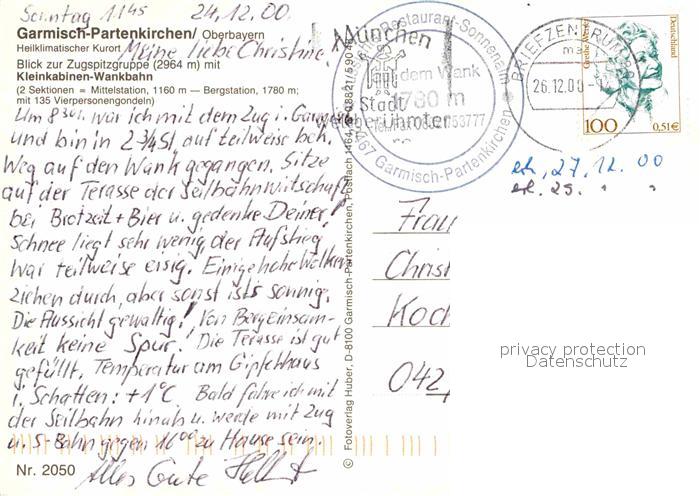 Sonntag 11⁴⁵ 24.12.00.
Garmisch-Partenkirchen/ Oberbayern
Heilklimatischer Kurort
Meine liebe Christine!
Blick zur Zugspitzgruppe (2964 m) mit
Kleinkabinen-Wankbahn
(2 Sektionen = Mittelstation, 1160 m — Bergstation, 1780 m;
mit 135 Vierpersonengondeln)
Um 8 30 war ich mit dem Zug i. Garmisch
und bin in 2 3/4 St, auf teilweise
Weg auf den Wank gegangen. Sitze
auf der Terasse der Seilbahnwirtschaft
bei Brotzeit + Bier u. gedenke Deiner!
Schnee liegt sehr wenig, der Aufstieg
war teilweise eisig. Einige hohe Wolken
ziehen durch, aber sonst ists sonnig.
Die Aussicht gewaltig! Von Bergeinsam-
keit keine Spur! Die Terasse ist gut
gefüllt. Temperatur am Gipfelhaus
i. Schatten: +1°C Bald fahre ich mit
der Seilbahn hinab u. werde mit Zug
u. S-Bahn gegen 16⁰⁰ zu Hause sein.
Nr. 2050
Alles Gute
© Fotoverlag Huber, D-8100 Garmisch-Partenkirchen, Postfach 464, 08821/590
München
Stadt
berühmter
Restaurant-Sonnenalm
dem Wank
1780 m
53777
Garmisch-Partenkirchen
BRIEFZENTRUM
26.12.00
Deutschland
100
0,51€
eh. 27.12.00
Frau
Christ
Koc
042
privacy protection
Datenschutz